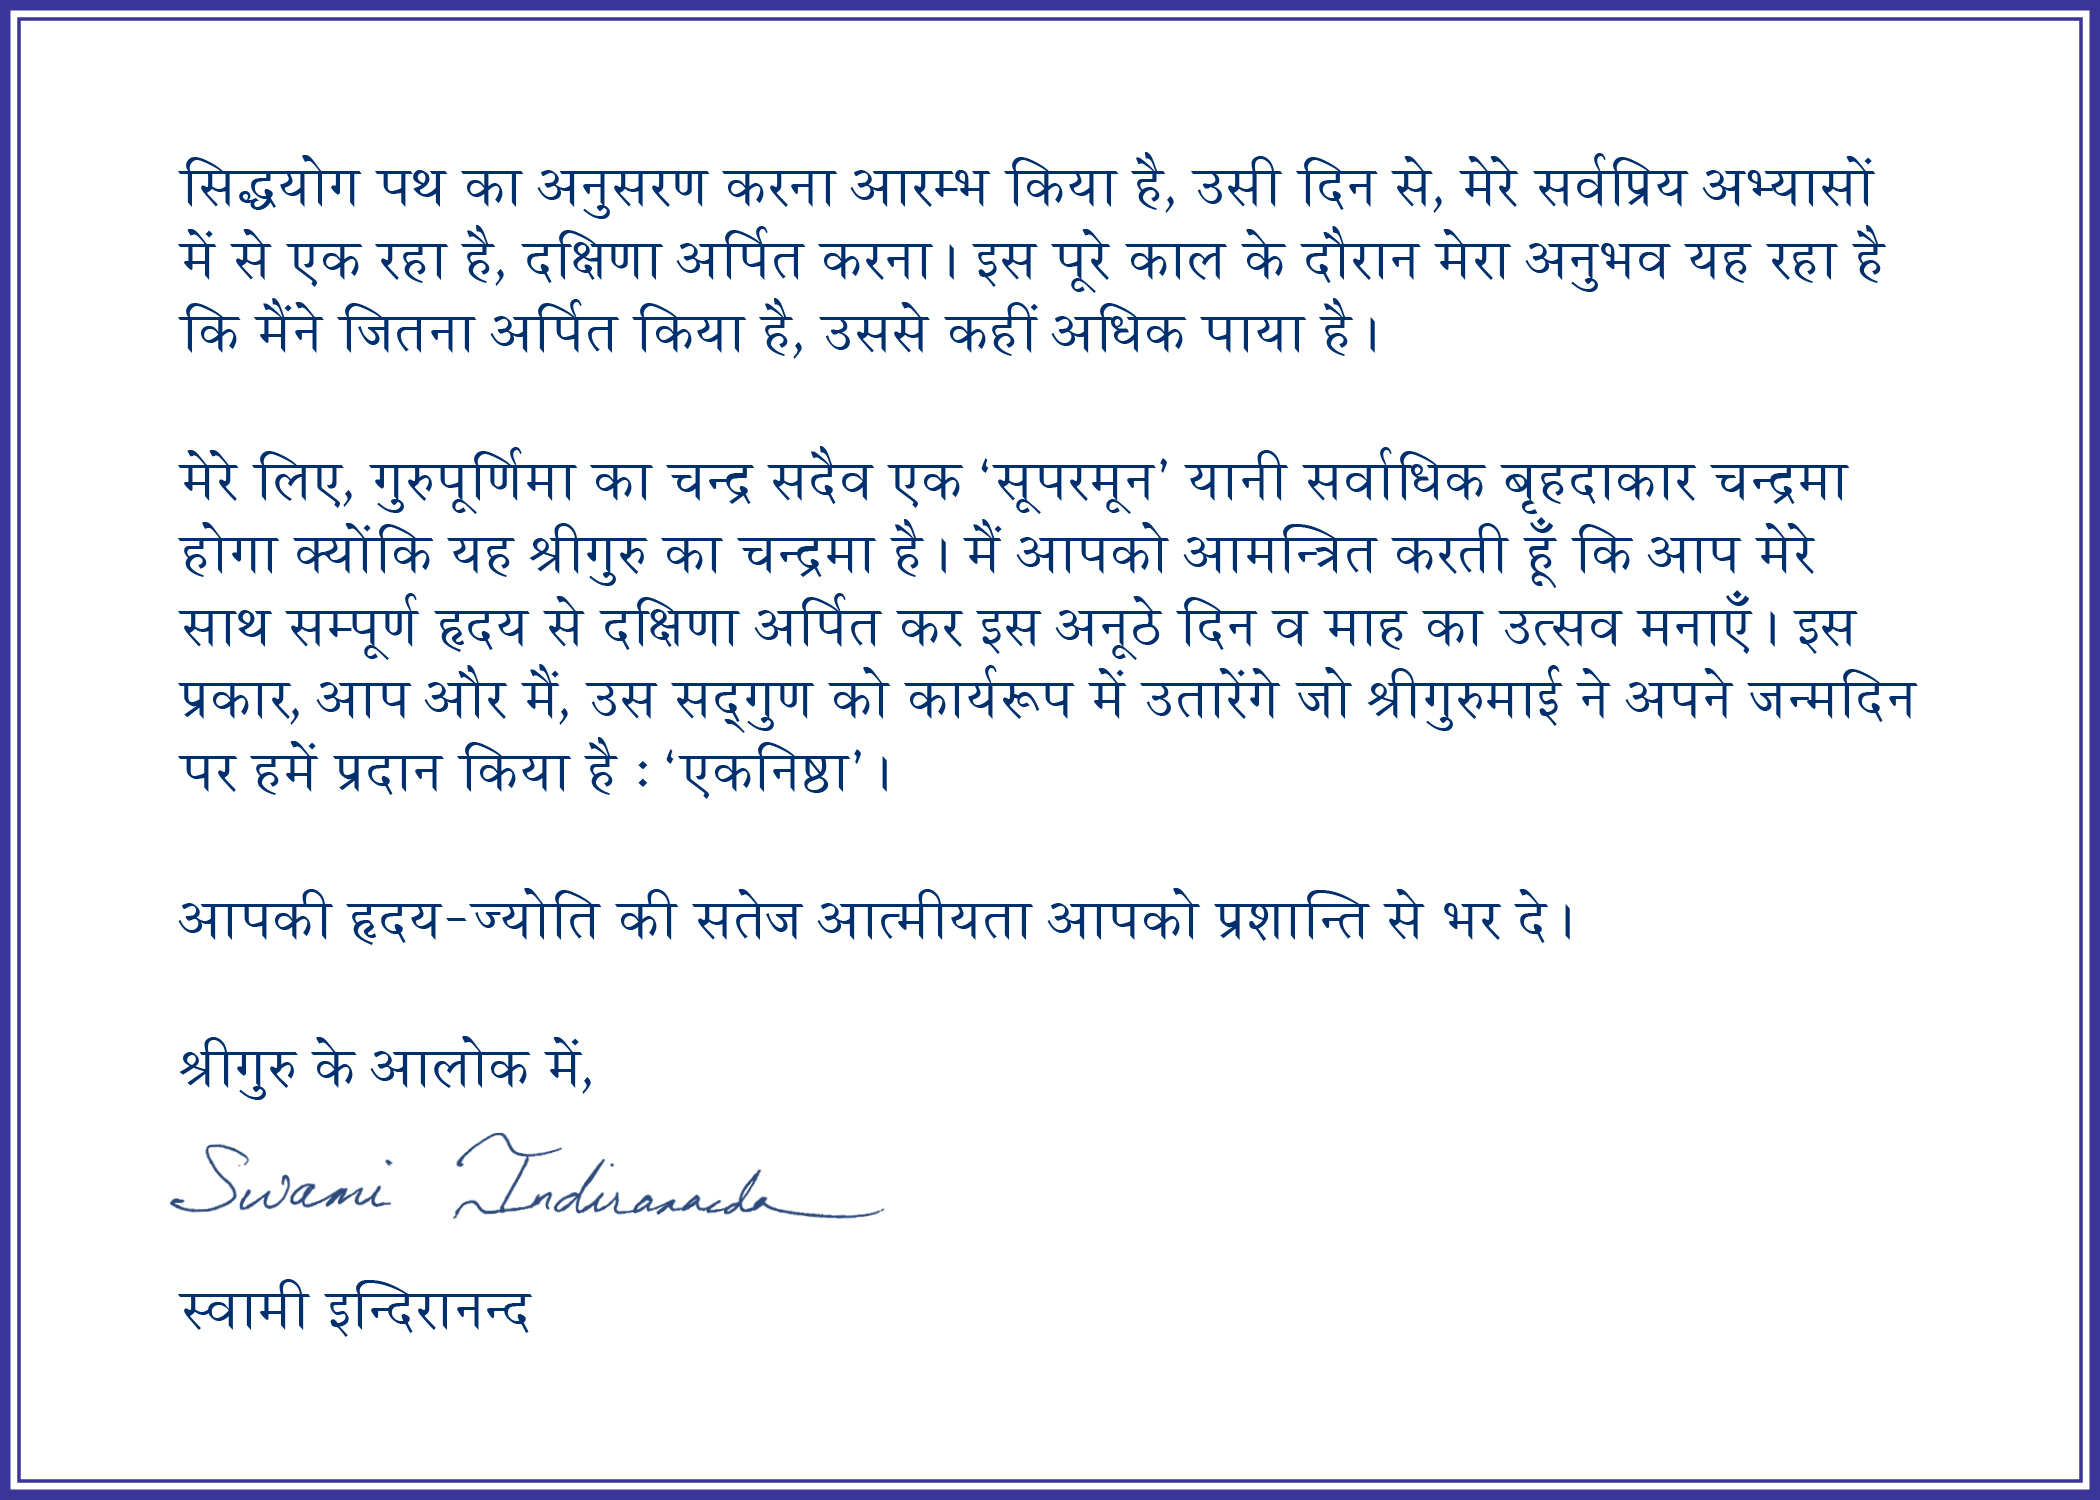 सिद्धयोग पथ का अनुसरण करना आरम्भ किया है, उसी दिन से, मेरे सर्वप्रिय अभ्यासों
में से एक रहा है, दक्षिणा अर्पित करना। इस पूरे काल के दौरान मेरा अनुभव यह रहा है
कि मैंने जितना अर्पित किया है, उससे कहीं अधिक पाया है।
मेरे लिए, गुरुपूर्णिमा का चन्द्र सदैव एक ‘सूपरमून’ यानी सर्वाधिक बृहदाकार चन्द्रमा
होगा क्योंकि यह श्रीगुरु का चन्द्रमा है। मैं आपको आमन्त्रित करती हूँ कि आप मेरे
साथ सम्पूर्ण हृदय से दक्षिणा अर्पित कर इस अनूठे दिन व माह का उत्सव मनाएँ। इस
प्रकार, आप और मैं, उस सद्‌गुण को कार्यरूप में उतारेंगे जो श्रीगुरुमाई ने अपने जन्मदिन
पर हमें प्रदान किया है : ‘एकनिष्ठा’।
आपकी हृदय-ज्योति की सतेज आत्मीयता आपको प्रशान्ति से भर दे।
श्रीगुरु के आलोक में,
Swami Indirananda
स्वामी इन्दिरानन्द